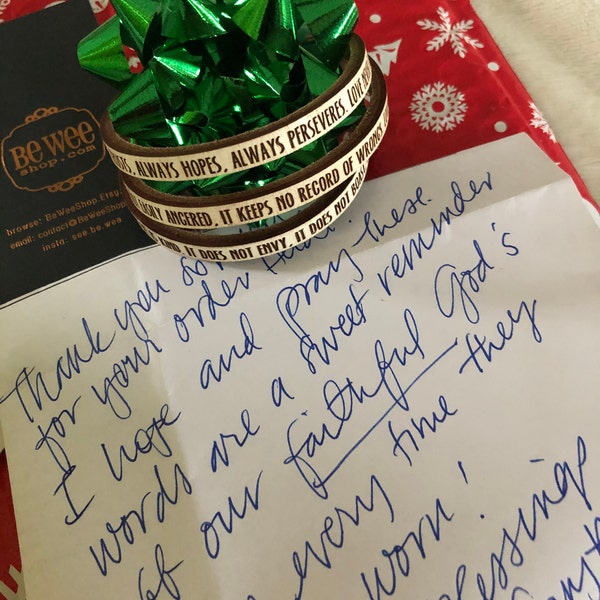 BE WEE
shop.com
browse: BeWeeShop.Etsy.
email: contact@BeWeeShop
insta: see.be.wee
ALWAYS HOPES, ALWAYS PERSEVERES. LOVE
ANGERED, IT KEEPS NO RECORD OF WRONGS.
KIND. IT DOES NOT ENVY, IT DOES NOT BOAST
Thank you so
for your order
I hope and pray these
words are a sweet reminder
of our faithful God's
every time they
worn!